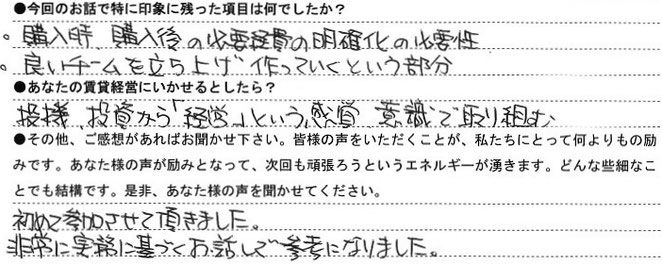 ●今回のお話で特に印象に残った項目は何でしたか?
。購入時、購入後の必要経費の明確化の必要性
。良いチームを立ち上げ作っていくという部分
●あなたの賃貸経営にいかせるとしたら?
投機、投資から「経営」という感覚、意識で取り組む、
●その他、ご感想があればお聞かせ下さい。皆様の声をいただくことが、私たちにとって何よりもの励
みです。あなた様の声が励みとなって、次回も頑張ろうというエネルギーが湧きます。どんな些細なこ
とでも結構です。是非、あなた様の声を聞かせてください。
初めて参加させて頂きました。
非常に実務に基づくお話しで参考になりました。